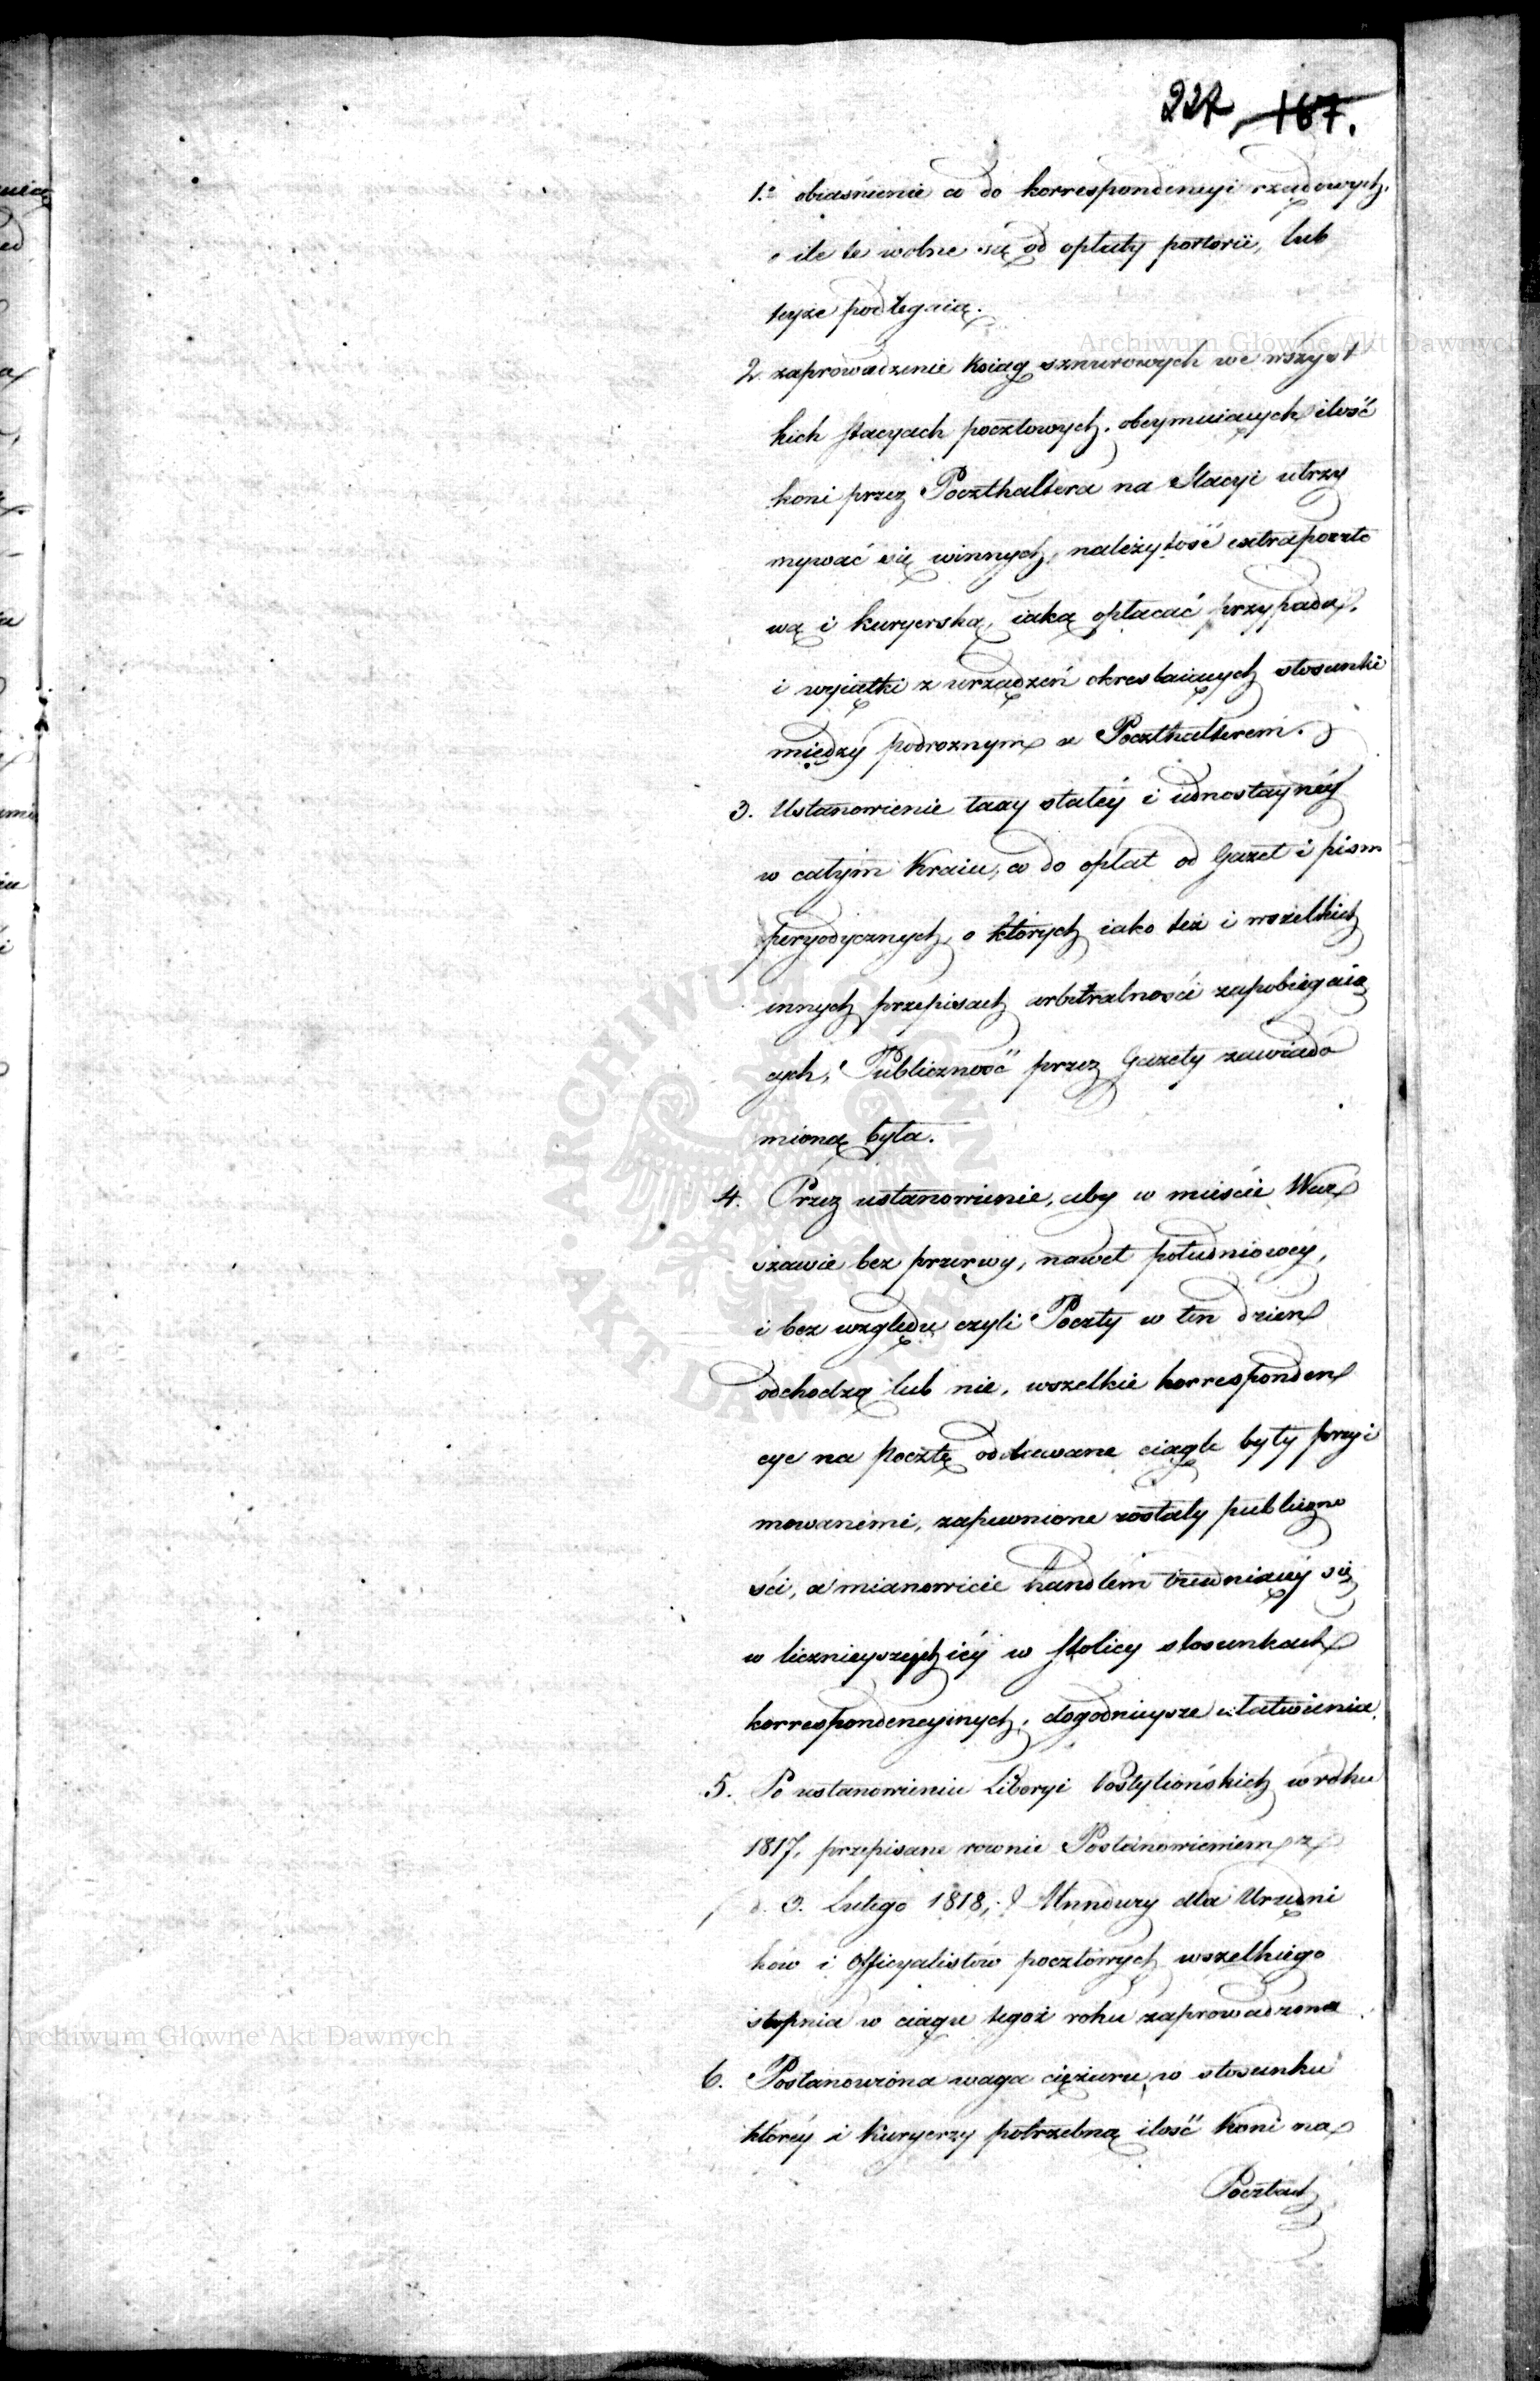 227 167.
1.° obiaśnienie co do korrespondencyi rządowych,
o ile te wolne są od opłaty portorii, lub
teyże podlegaią.
2. zaprowadzenie Xsiąg sznurowych we wszyst
kich stacyach pocztowych, obeymuiących ilość
koni przez Poczthaltera na Stacyi utrzy
mywać się winnych, należytość extrapoczto
wą i kuryerską, iaką opłacać przypada,
i wyiątki z urządzeń okreslaiących stosunki
między podroznym a Poczthalterem.
3. Ustanowienie taxy stałéy i iednostaynéy
w całym Kraiu, co do opłat od Gazet i pism
peryodycznych, o których iako też i wszelkich
innych przepisach arbitralności zapobiegaią
cych, Publiczność przez Gazety zawiado
mioną była.
4. Przez ustanowienie, aby w mieście War
szawie bez przerwy, nawet południowéy,
i bez względu czyli Poczty w ten dzień
odchodzą lub nie, wszelkie korresponden
cye na pocztę oddawane ciągle były przyi
mowanemi, zapewnione zostały publiczno
ści, a mianowicie handlem trudniącéy się
w licznieyszych iéy w stolicy stosunkach
korrespondencyinych, dogodnieysze ułatwienia.
5. Po ustanowieniu Liberyi Postyliońskich w roku
1817, przepisane rownie Postanowieniem z
d. 3. Lutego 1818, Mundury dla Urzędni
ków i Officyalistów pocztowych wszelkiego
stopnia w ciągu tegoż roku zaprowadzono
6. Postanowiona waga ciężaru, w stosunku
któréy i Kuryerzy potrzebną ilość koni na
Pocztach
Archiwum Główne Akt Dawnych
Archiwum Główne Akt Dawnych
ARCHIWUM GŁÓWNE AKT DAWNYCH